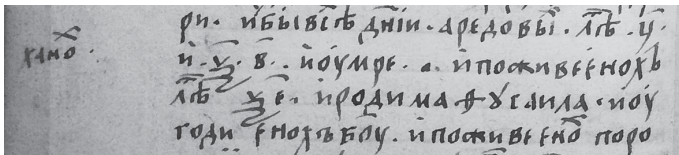 ри· и҆бывсѣ дн҃іи· аредовы· лѣ҃· ц҃·
хано҃·
и҆·ѯ҃·в҃· и҆оумре· а· и҆поживееноⷯъ
лѣ҃ ѯ҃е· и҆родимаѳꙋсаила· и҆оу
годи енохъбо҃у· и҆поживеено҃ поро